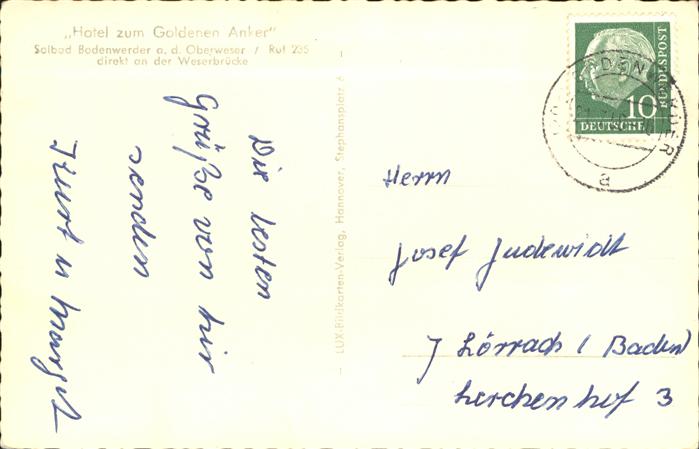 „Hotel zum Goldenen Anker"
Solbad Bodenwerder a. d. Oberweser / Ruf 235
direkt an der Weserbrücke
Die besten
Grüße von hir
senden
Kurt u Margit
LUX-Bildkarten-Verlag, Hannover, Stephansplatz
10
DEUTSCHE
BUNDESPOST
a
Herrn
Josef Judewidt
Lörrach / Baden
Lerchenhof 3